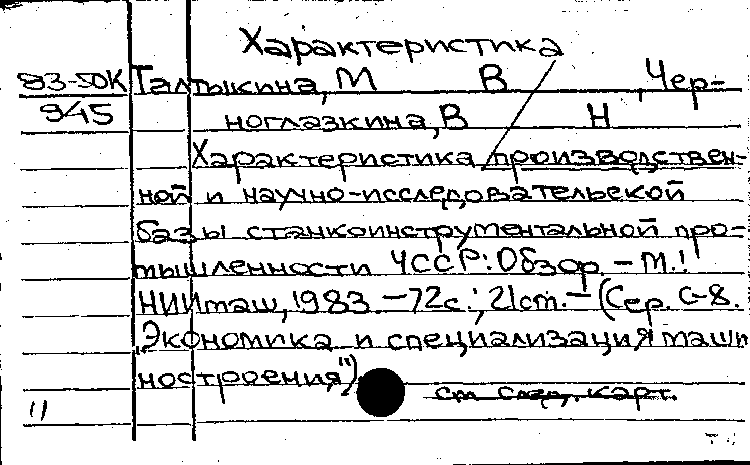 Характеристика
83-50К Галтыкина, М В , Чер-
9/45 ноглазкина, В Н
Характеристика производствен-
ной и научно-исследовательской
базы станкоинструментальной про-
мышленности ЧССР: Обзор. – М.:
НИИмаш, 1983. – 72с.; 21см. – (Сер. С-8.
"Экономика и специализация маши
ностроения")
см. след. карт.